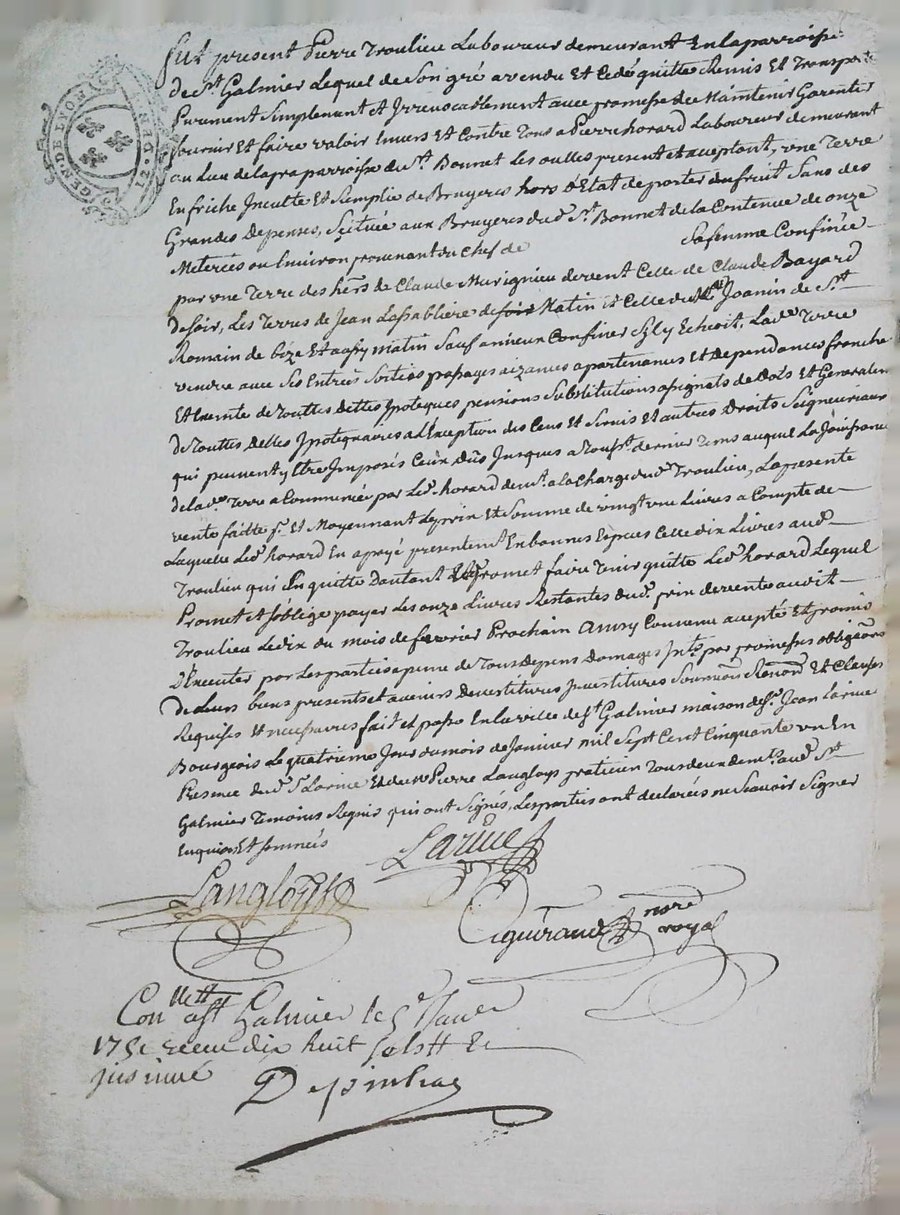 GEN. DE LYON
Fut present Pierre Troulieu Laboureur demeurant En la parroisse
de St. Galmier Lequel de son gré a vendu Et Cedé quitte Remis Et Transporté
Purement Simplement et Irrevocablement avec promesse de Maintenir Garentir
fournir Et faire valoir Envers Et Contre Tous a Pierre horard Laboureur demeurant
au Lieu de la parroisse de St. Bonnet Les oulles present et aceptant, une Terre
En friche Inculte Et Remplie de Bruyeres hors d'Etat de porter du fruit Sans des
Grandes Depenses, Scituée aux Bruyeres dud. St. Bonnet de la Contenue de onze
Meterées ou Environ provenant du Chef de sa femme Confinée
par une Terre des hers. de Claude Murignieu de vent Celle de Claude Bayard
de soir, Les Terres de Jean Lassabliere de Matin Et Celle de Joanin de St.
Romain de bize Et aussy matin Sauf a mieux Confiner Sy y Echoit, Lade. Terre
vendue avec Ses Entrées Sorties passages aizances apartenances Et dependances franche
Et Exemte de Touttes dettes Ipoteques pensions Substitutions assignats de Dots Et Generalem
de Touttes dettes Ipotequaires a L'Exception des Cens Et Servis Et autres Droits Seigneuriaux
qui peuvent y Etre Imposés Ceux Dûs Jusques a dernier Tems auquel La Joüissance
de lad. Terre a Commencée par Led. horard demt. a la Charge dud. Troulieu, La presente
vente faitte pr. Et Moyennant Le prix Et Somme de vingt une Livres a Compte de
Laquelle Led. horard En a payé presentemt. En bonnes Especes Celle dix Livres aud.
Troulieu qui L'en quitte D'autant Et promet faire Tenir quitte Led. horard Lequel
Promet et s'oblige payer Les onze Livres Restantes dud. prix de vente audit
Troulieu Le dix du mois de fevrier Prochain Ainsy Convenu accepté Et promis
D'Executer par Les parties a peine de Tous depens Domages Ints. par promesses obligaons
de Leurs biens presents et avenirs devestitures Investitures Soumissons Renonons Et Clauses
Requises Et necessaires fait et passé En la ville de St. Galmier maison de Sr. Jean Larive
Bourgeois Le quatrieme Jour du mois de Janvier mil Sept Cent Cinquante un En
Presence dud. Sr. Larive Et de Pierre Langloys praticien Tous deux demts. aud. St.
Galmier Temoins Requis qui ont Signés, Les parties ont declarées ne Scavoir Signer
Enquises Et Sommées
Larive
Langloys
Gguirand nore
royal
Conllé a St Galmier le 5e Janer
1751 receu dix huit sols
insinué
Depinhac